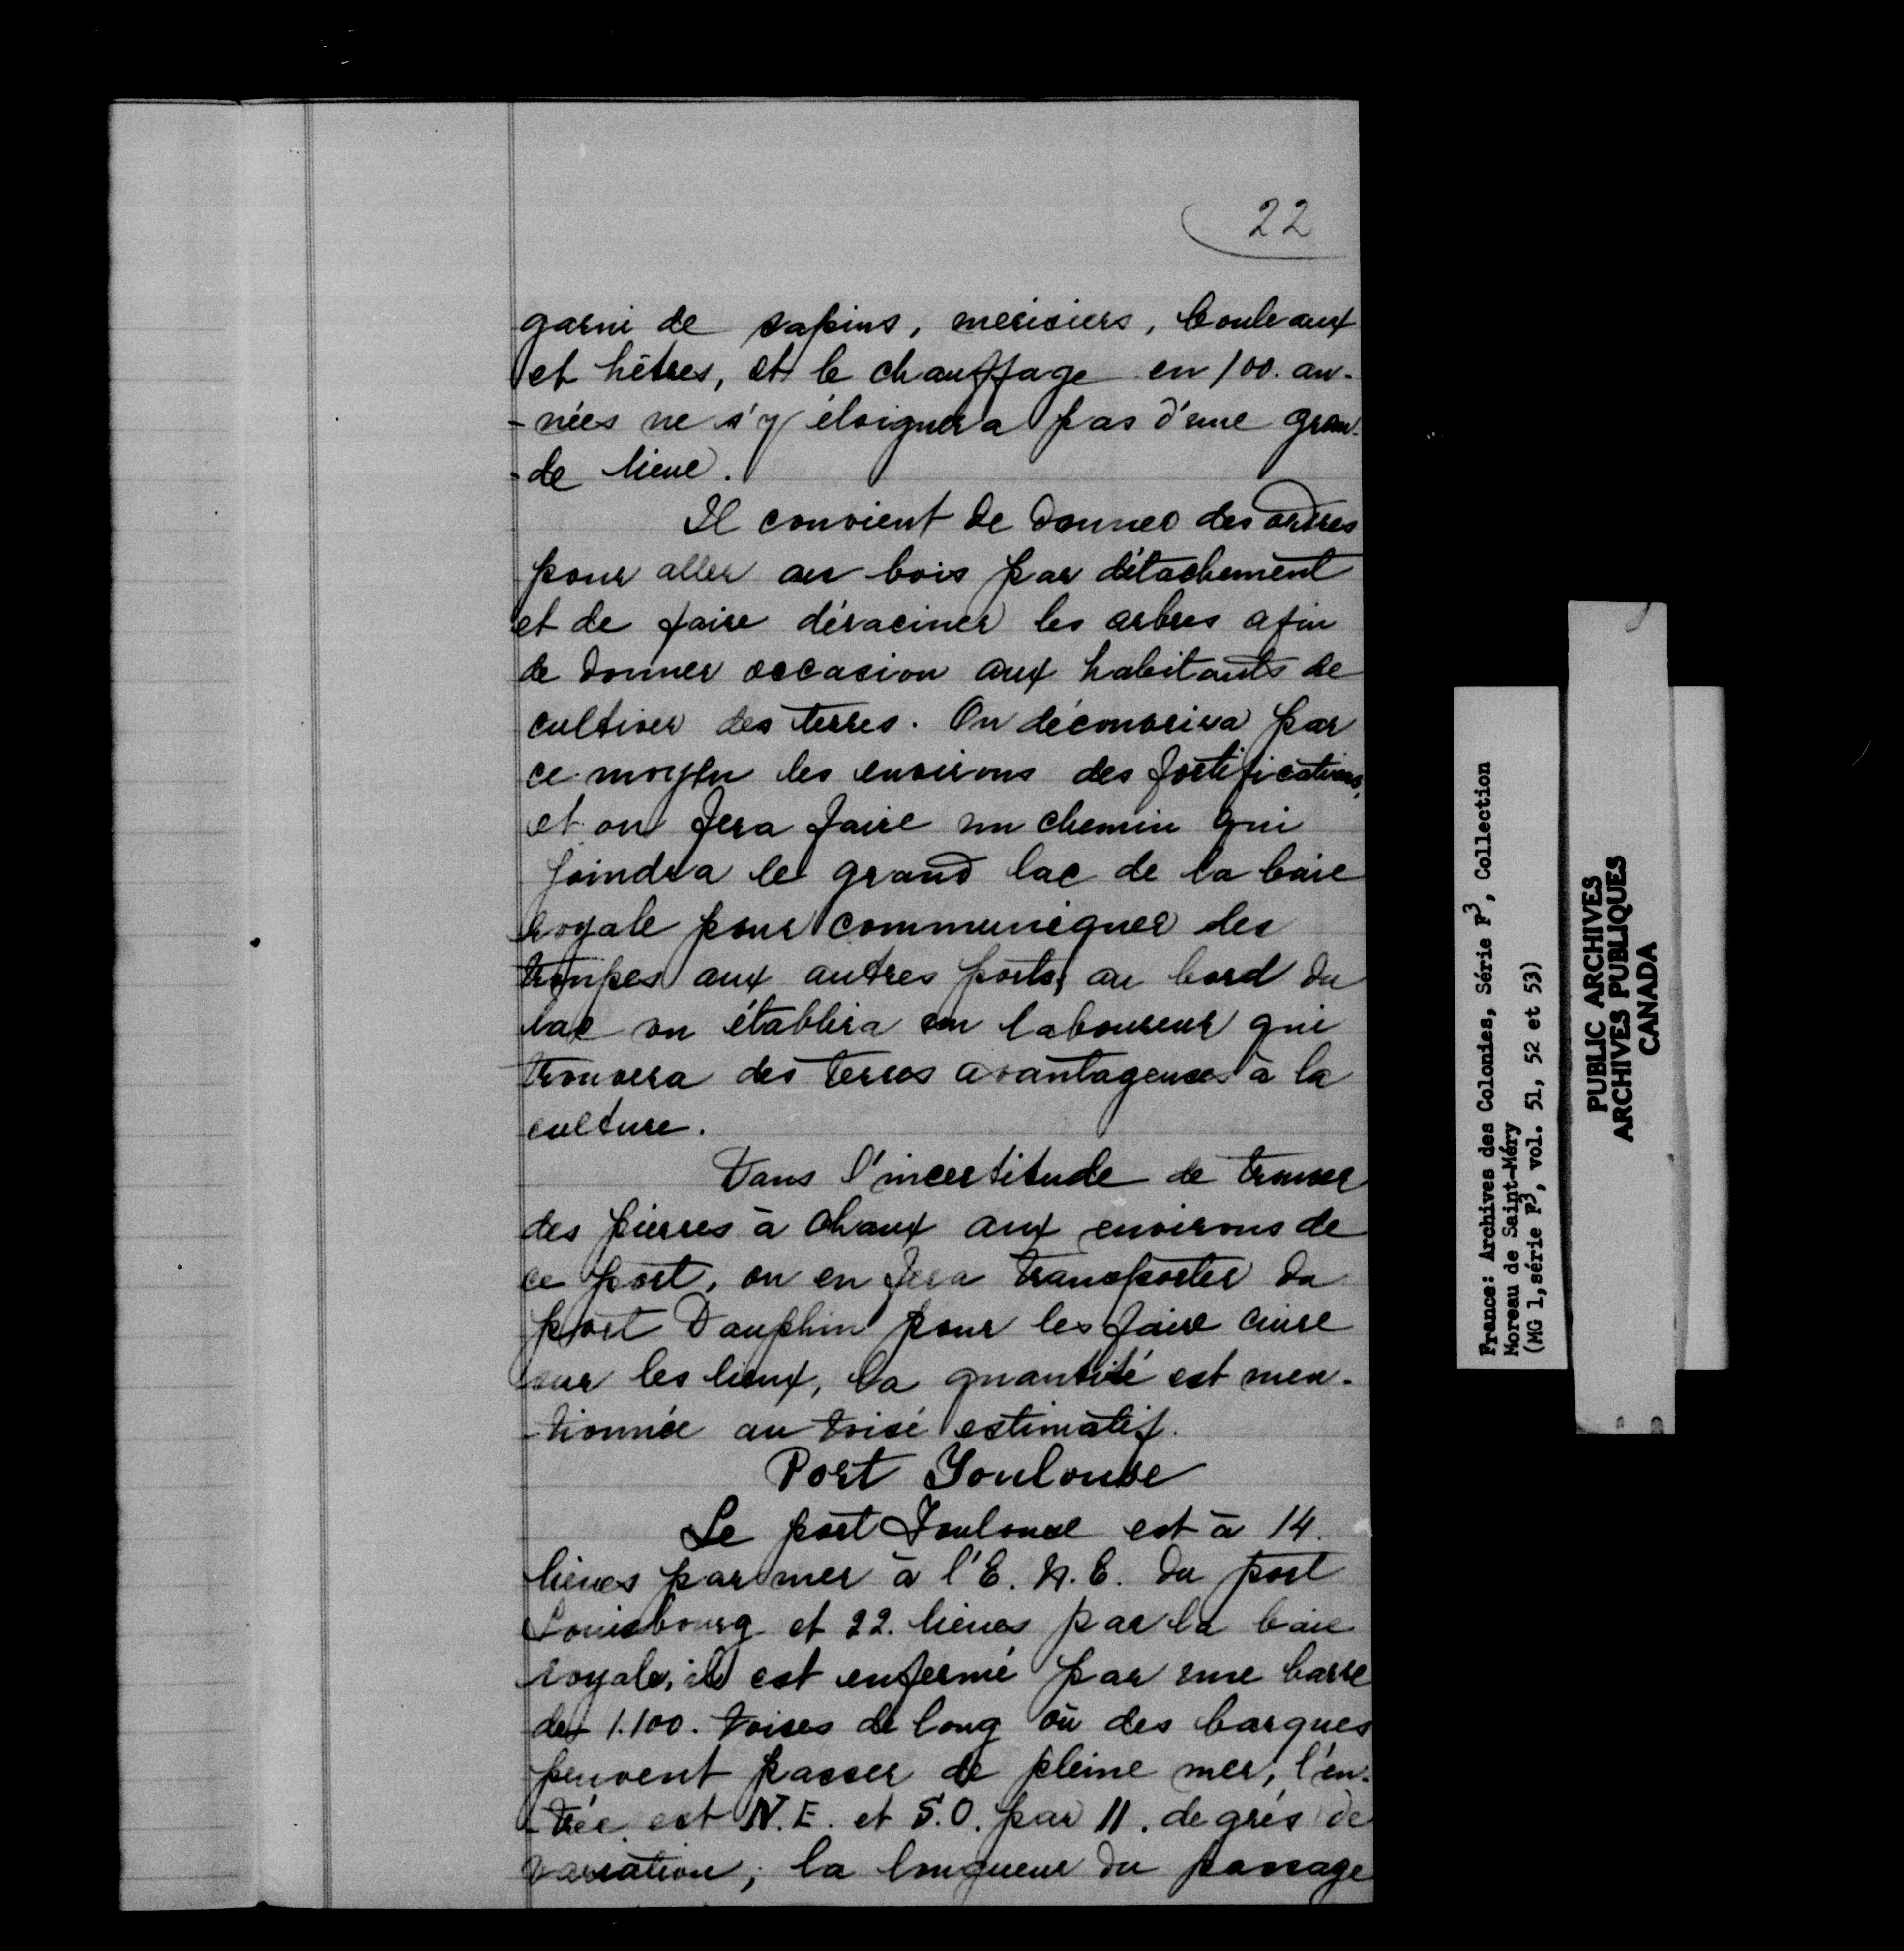 22
garni de sapins, merisiers, bouleaux
et hêtres, et le chauffage en 100. an-
-nées ne s'y éloignera pas d'une gran-
-de lieue.
Il convient de donner des ordres
pour aller au bois par détachement
et de faire déraciner les arbres afin
de donner occasion aux habitants de
cultiver des terres. On découvrira par
ce moyen les environs des fortifications,
et on fera faire un chemin qui
joindra le grand lac de la baie
royale pour communiquer des
troupes aux autres ports; au bord du
lac on établira un laboureur qui
trouvera des terres avantageuses à la
culture.
Dans l'incertitude de trouver
des pierres à chaux aux environs de
ce port, on en fera transporter du
port Dauphin pour les faire cuire
sur les lieux, la quantité est men-
-tionnée au toisé estimatif.
Port Toulouse
Le port Toulouse est à 14.
lieues par mer à l'E. N. E. du port
Louisbourg et 22. lieues par la baie
royale, il est enfermé par une barre
de 1.100. toises de long où des barques
peuvent passer de pleine mer, l'en-
-trée est N.E. et S.O. par 11. degrés de
variation; la longueur du passage
France: Archives des Colonies, Série F3, Collection
Moreau de Saint-Méry
(MG 1, série F3, vol. 51, 52 et 53)
PUBLIC ARCHIVES
ARCHIVES PUBLIQUES
CANADA